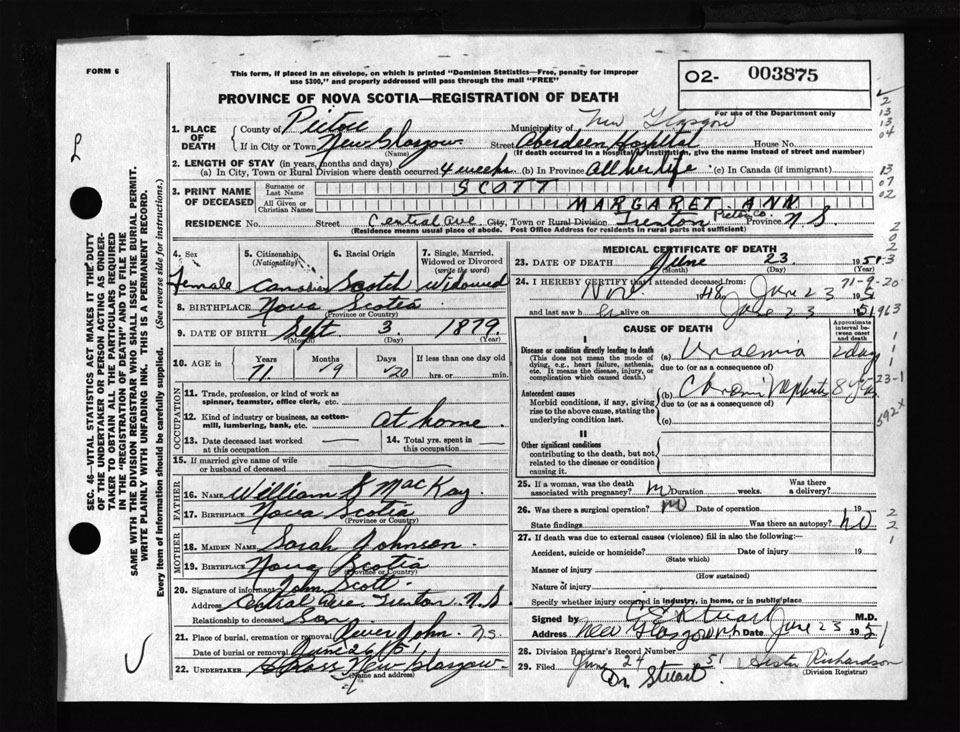 FORM 6
This form, if placed in an envelope, on which is printed "Dominion Statistics—Free, penalty for improper
use $300," and properly addressed will pass through the mail "FREE"
O2- 003875
PROVINCE OF NOVA SCOTIA—REGISTRATION OF DEATH
For use of the Department only
1. PLACE OF DEATH County of Pictou Municipality of New Glasgow
If in City or Town New Glasgow (Name) Street Aberdeen Hospital House No.
(If death occurred in a hospital or institution, give the name instead of street and number)
2. LENGTH OF STAY (in years, months and days)
(a) In City, Town or Rural Division where death occurred 4 weeks (b) In Province All her life (c) In Canada (if immigrant)
3. PRINT NAME OF DECEASED Surname or Last Name SCOTT
All Given or Christian Names MARGARET ANN
RESIDENCE No. Street Central Ave City, Town or Rural Division Trenton Pictou Co Province N S
(Residence means usual place of abode. Post Office Address for residents in rural parts not sufficient)
4. Sex Female
5. Citizenship (Nationality) Canadian
6. Racial Origin Scotch
7. Single, Married, Widowed or Divorced (write the word) Widowed
8. BIRTHPLACE Nova Scotia
(Province or Country)
9. DATE OF BIRTH Sept 3 1879
(Month) (Day) (Year)
10. AGE in Years 71 Months 9 Days 20 If less than one day old
hrs. or min.
OCCUPATION
11. Trade, profession, or kind of work as
spinner, teamster, office clerk, etc.
12. Kind of industry or business, as cotton-
mill, lumbering, bank, etc. at home
13. Date deceased last worked at this occupation
14. Total yrs. spent in this occupation
15. If married give name of wife
or husband of deceased
FATHER
16. NAME William MacKay
17. BIRTHPLACE Nova Scotia
(Province or Country)
MOTHER
18. MAIDEN NAME Sarah Johnson
19. BIRTHPLACE Nova Scotia
(Province or Country)
20. Signature of informant John Scott
Address Central Ave. Trenton N.S
Relationship to deceased Son
21. Place of burial, cremation or removal River John. N.S
Date of burial or removal June 26 51
22. UNDERTAKER New Glasgow
(Name and address)
MEDICAL CERTIFICATE OF DEATH
23. DATE OF DEATH June 23 1951
(Month) (Day) (Year)
24. I HEREBY CERTIFY that I attended deceased from
Nov 1948 to June 23 1951
and last saw her alive on June 23 1951
CAUSE OF DEATH
Approximate interval between onset and death
I
Disease or condition directly leading to death (a) Uraemia 2 days
(This does not mean the mode of dying, e.g., heart failure, asthenia, etc. It means the disease, injury, or complication which caused death.)
due to (or as a consequence of)
Antecedent causes (b) Chronic Nephritis 8 yrs
Morbid conditions, if any, giving rise to the above cause, stating the underlying condition last.
due to (or as a consequence of)
(c)
II
Other significant conditions
contributing to the death, but not related to the disease or condition causing it.
25. If a woman, was the death associated with pregnancy? no Duration weeks. Was there a delivery?
26. Was there a surgical operation? no Date of operation 19
State findings Was there an autopsy? no
27. If death was due to external causes (violence) fill in also the following:—
Accident, suicide or homicide? Date of injury 19
(State which)
Manner of injury
(How sustained)
Nature of injury
Specify whether injury occurred in industry, in home, or in public place
Signed by Stuart M.D.
Address New Glasgow NS Date June 23 1951
28. Division Registrar's Record Number
29. Filed June 24 51 Hester Richardson
(Division Registrar)
Dr. Stuart
SEC. 46—VITAL STATISTICS ACT MAKES IT THE DUTY
OF THE UNDERTAKER OR PERSON ACTING AS UNDER-
TAKER TO OBTAIN ALL THE PARTICULARS REQUIRED
IN THE "REGISTRATION OF DEATH" AND TO FILE THE
SAME WITH THE DIVISION REGISTRAR WHO SHALL ISSUE THE BURIAL PERMIT.
WRITE PLAINLY WITH UNFADING INK. THIS IS A PERMANENT RECORD.
Every item of information should be carefully supplied. (See reverse side for instructions.)